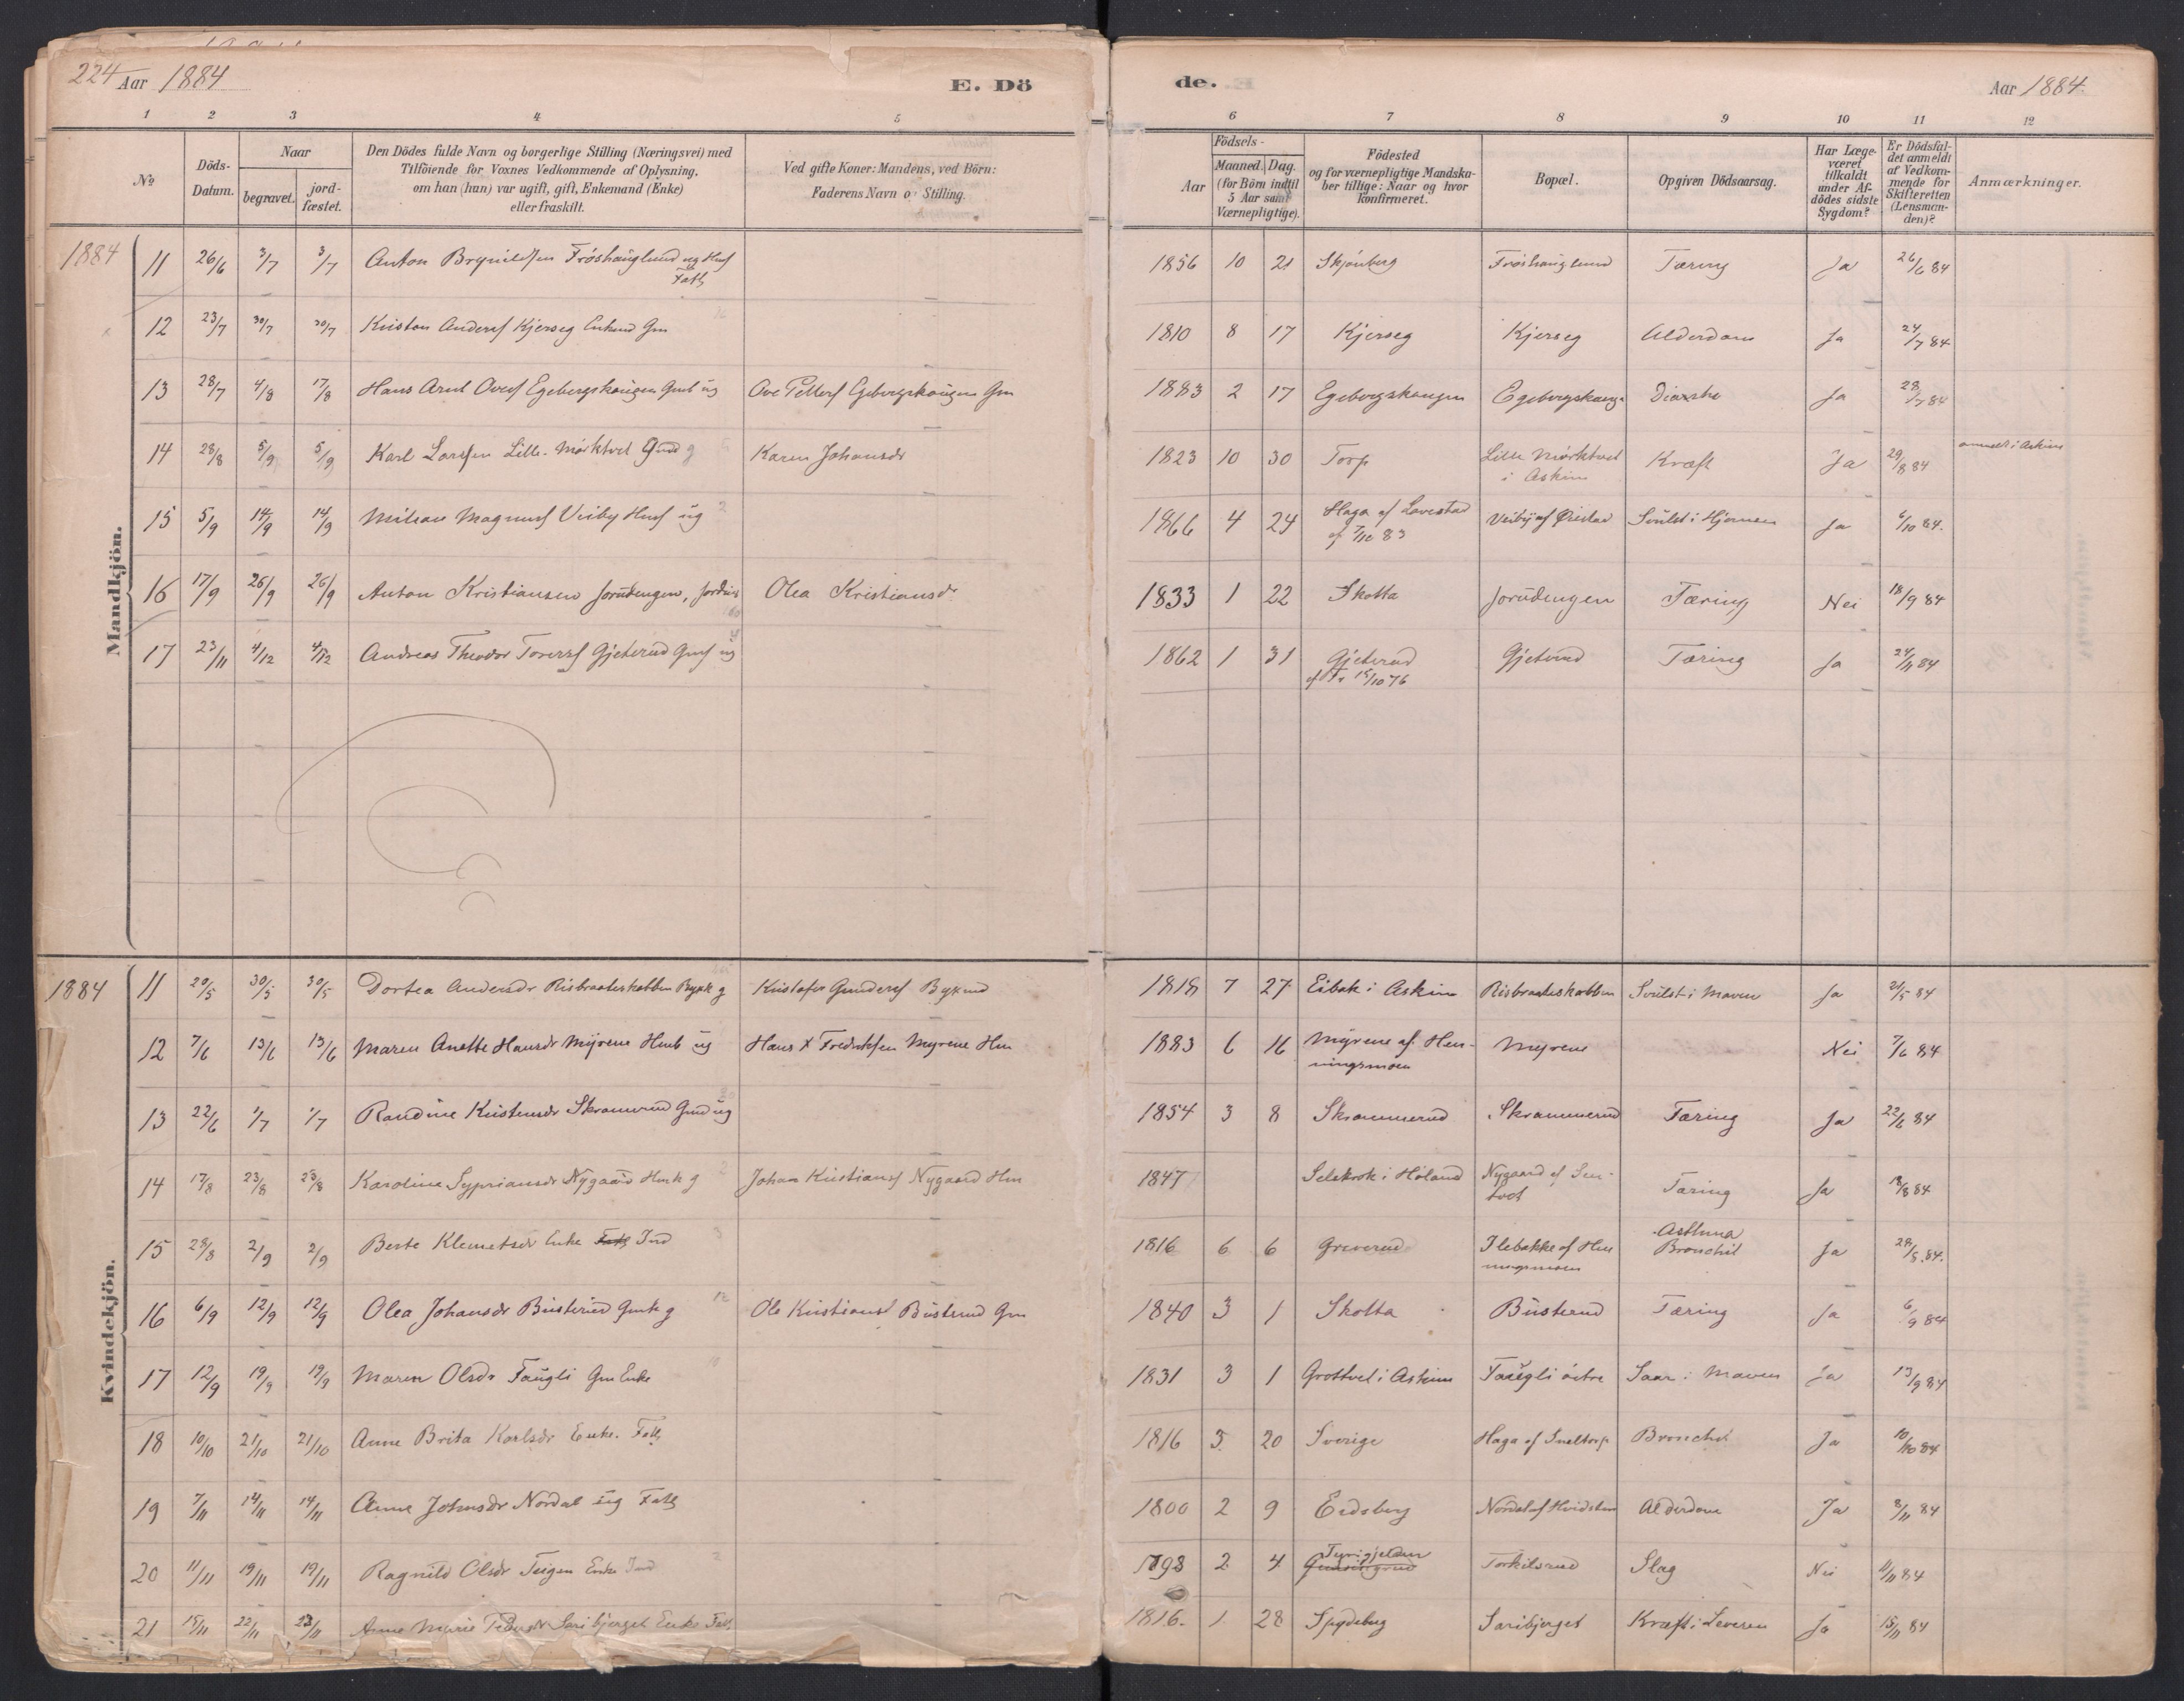 224 Aar 1884 E. Dö de. Aar 1884
1 2 3 4 5 6 7 8 9 10 11 12
No
Döds-Datum.
Naar
begravet.
jord-fæstet.
Den Dödes fulde Navn og borgerlige Stilling (Næringsvei) med
Tilföiende for Voxnes Vedkommende af Oplysning,
om han (hun) var ugift, gift, Enkemand (Enke)
eller fraskilt.
Ved gifte Koner: Mandens, ved Börn:
Faderens Navn o Stilling.
Aar
Födsels-
Maaned. Dag.
(for Börn indtil
5 Aar samt
Værnepligtige).
Födested
og for værnepligtige Mandska-
ber tillige: Naar og hvor
konfirmeret.
Bopæl.
Opgiven Dödsaarsag.
Har Læge
været
tilkaldt
under Af-
dödes sidste
Sygdom?
Er Dödsfal-
det anmeldt
af Vedkom-
mende for
Skifteretten
(Lensman-
den)?
Anmærkninger.
Mandkjön.
1884 11 26/6 3/7 3/7 Anton Brynildsen Fröshauglund ug Husf Fatt 1856 10 21 Skjönberg Fröshauglund Tæring Ja 26/6 84
12 23/7 30/7 30/7 Kristen Andersf Kjerseg Enkmd Gm 1810 8 17 Kjerseg Kjerseg Alderdom Ja 24/7 84
13 28/7 4/8 17/8 Hans Arnt Ovesf Egebergskaugen Gmb ug Ove Pettersf Egebergskaugen Gm 1883 2 17 Egebergskaugen Egebergskaug. Diarrhe Ja 28/7 84
14 28/8 5/9 5/9 Karl Larssen Lille-Mörktvet Gmd g Karen Johansdr 1823 10 30 Torp Lille Mörktvet i Askim Kræft Ja 29/8 84 anmeldt i Askim
15 5/9 14/9 14/9 Magnusf Viiby Husf ug 1866 4 24 Haga af Lovestad 7/10 83 Svulst i Hjernen Ja 6/10 84.
16 17/9 26/9 26/9 Anton Kristiansen Jorudengen, Olea Kristiansdr 1833 1 22 Skotta Jorudengen Tæring Nei 18/9 84
17 23/11 4/12 4/12 Andreas Theodor Torersf Gjeterud Gmsf ug 1862 1 31 Gjeterud 15/10 76 Gjeterud Tæring Ja 24/11 84
Kvindekjön.
1884 11 20/5 30/5 30/5 Dortea Andersdr Risbraateskabben g Kristofer Gundersf 1818 7 27 Eibak i Askim Risbraateskabben Svulst i Maven Ja 21/5 84
12 7/6 13/6 13/6 Maren Anette Hansdr Myrene Hmb ug Hans X Fredriksen Myrene Hm 1883 6 16 Myrene af Hen-ningsmoen Myrene Nei 7/6 84
13 22/6 1/7 1/7 Randine Kristensdr Skramerud Gmd ug 1854 3 8 Skrammerud Skrammerud Tæring Ja 22/6 84
14 17/8 23/8 23/8 Karoline Sypriansdr Nygaard Hmk g Johan Kristiansf Nygaard Hm 1847 Selskrok i Höland Nygaard af Tæring Ja 18/8 84
15 28/8 2/9 2/9 Berte Klemetsdr Enke Fatt Ind 1816 6 6 Greverud Ilebakke af Hen ningsmoen Asthma Bronchit Ja 28/8.84.
16 6/9 12/9 12/9 Olea Johansdr Busterud Gmk g Ole Kristiansf Busterud Gm 1840 3 1 Skotta Busterud Tæring Ja 6/9 84
17 12/9 19/9 19/9 Maren Olsdr Faugli Gm Enke 1831 3 1 Grottvet i Askim Faugli östre Saar i Maven Ja 13/9 84
18 10/10 21/10 21/10 Anne Brita Karlsdr Enke. Fatt 1816 5 20 Sverige Haga af Sneltorp Bronchit Ja 10/10 84
19 7/11 14/11 14/11 Anne Johnsdr Nordal ug Fatt 1800 2 9 Eidsberg Nordal af Hvidsten Alderdom Ja 8/11 84
20 11/11 19/11 19/11 Ragnild Olsdr Teigen Enke Ind 1798 2 4 Tyrigjelden Torkilsrud Slag Nei 11/11 84
21 15/11 22/11 23/11 Anne Marie Pedersdr Saribjerget Enke Fatt 1816. 1 28 Spydeberg Saribjerget Kræft i Leveren Ja 15/11 84